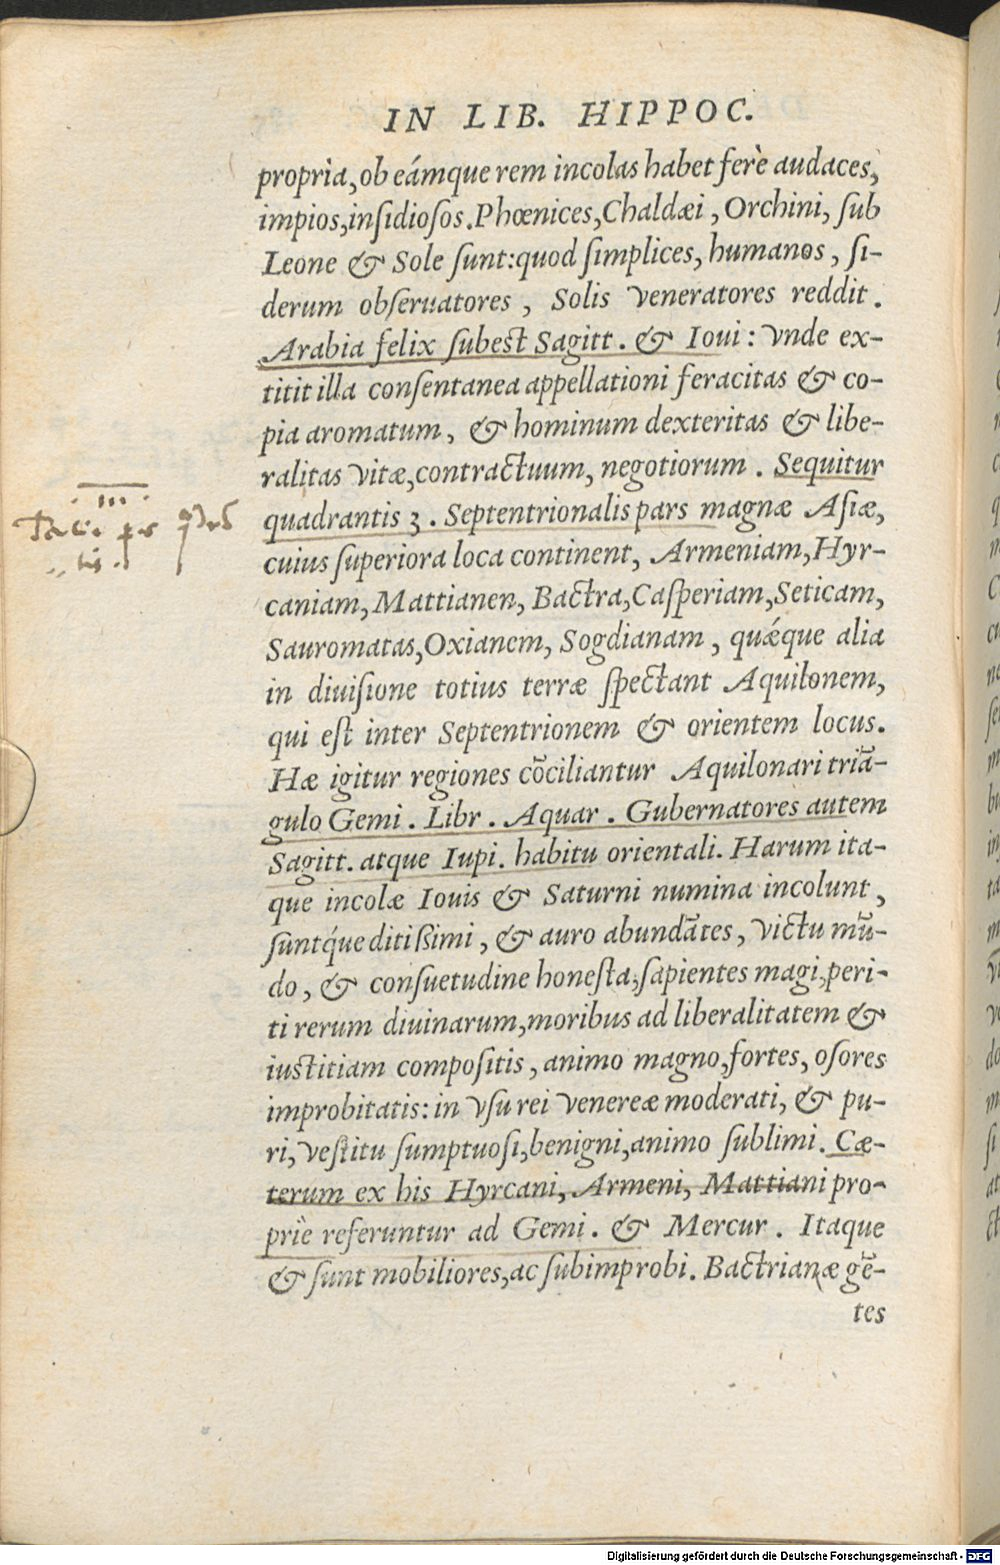 IN LIB. HIPPOC.
propria, ob eámque rem incolas habet ferè audaces,
impios, insidiosos. Phœnices, Chaldæi, Orchini, sub
Leone & Sole sunt: quod simplices, humanos, si-
derum obseruatores, Solis veneratores reddit.
Arabia felix subest Sagitt. & Ioui: vnde ex-
titit illa consentanea appellationi feracitas & co-
pia aromatum, & hominum dexteritas & libe-
ralitas vitæ, contractuum, negotiorum. Sequitur
quadrantis 3. Septentrionalis pars magnæ Asiæ,
III
cuius superiora loca continent, Armeniam, Hyr-
caniam, Mattianen, Bactra, Casperiam, Seticam,
Sauromatas, Oxianem, Sogdianam, quǽque alia
in diuisione totius terræ spectant Aquilonem,
qui est inter Septentrionem & orientem locus.
Hæ igitur regiones cōciliantur Aquilonari triā-
gulo Gemi. Libr. Aquar. Gubernatores autem
Sagitt. atque Iupi. habitu orientali. Harum ita-
que incolæ Iouis & Saturni numina incolunt,
suntq́ue ditißimi, & auro abundātes, victu mū-
do, & consuetudine honesta, sapientes magi, peri-
ti rerum diuinarum, moribus ad liberalitatem &
iustitiam compositis, animo magno, fortes, osores
improbitatis: in vsu rei venereæ moderati, & pu-
ri, vestitu sumptuosi, benigni, animo sublimi. Cæ-
terum ex his Hyrcani, Armeni, Mattiani pro-
priè referuntur ad Gemi. & Mercur. Itaque
& sunt mobiliores, ac subimprobi. Bactrianæ gē-
tes
Digitalisierung gefördert durch die Deutsche Forschungsgemeinschaft - DFG